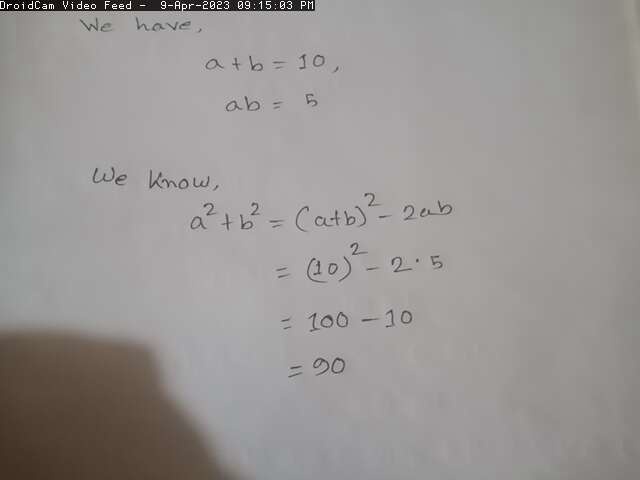 DroidCam Video Feed - 9-Apr-2023 09:15:03 PM
We have,
a+b = 10,
ab = 5
We know,
a² + b² = (a+b)² - 2ab
= (10)² - 2 · 5
= 100 - 10
= 90